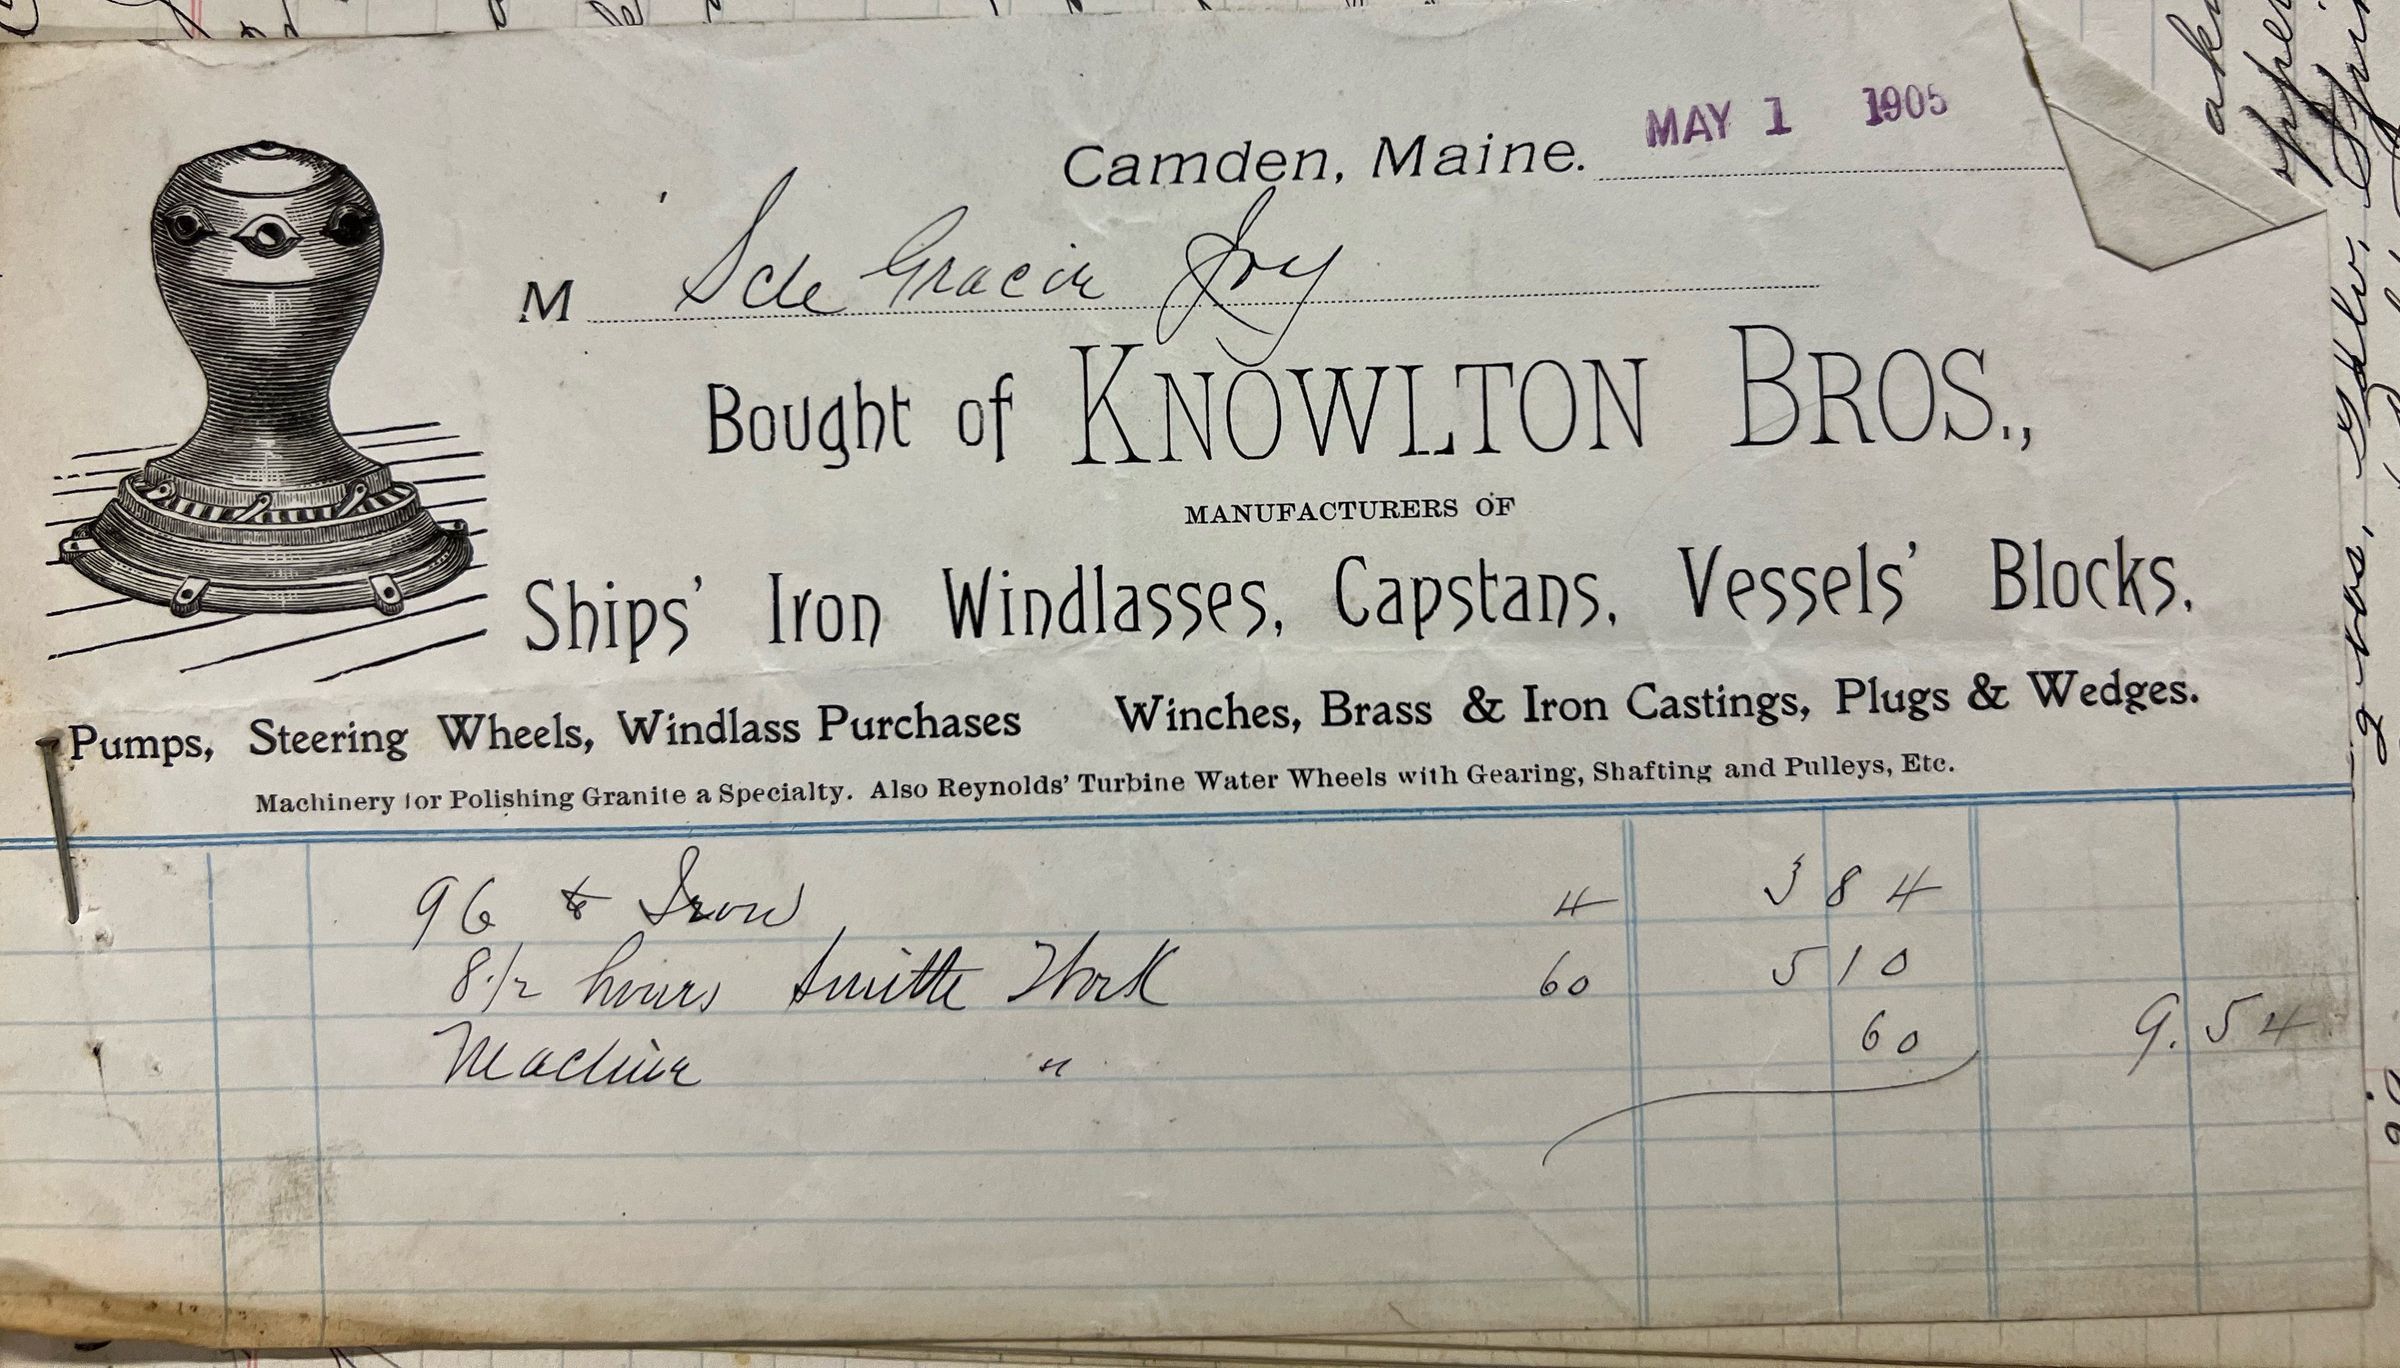 Camden, Maine. MAY 1 1905
M Sch Gracie Joy
Bought of KNOWLTON BROS.,
MANUFACTURERS OF
Ships' Iron Windlasses, Capstans, Vessels' Blocks,
Pumps, Steering Wheels, Windlass Purchases Winches, Brass & Iron Castings, Plugs & Wedges.
Machinery for Polishing Granite a Specialty. Also Reynolds' Turbine Water Wheels with Gearing, Shafting and Pulleys, Etc.
96 # Iron 4 3 84
8 1/2 hours Smith Work 60 5 10
Machine " 60 9.54